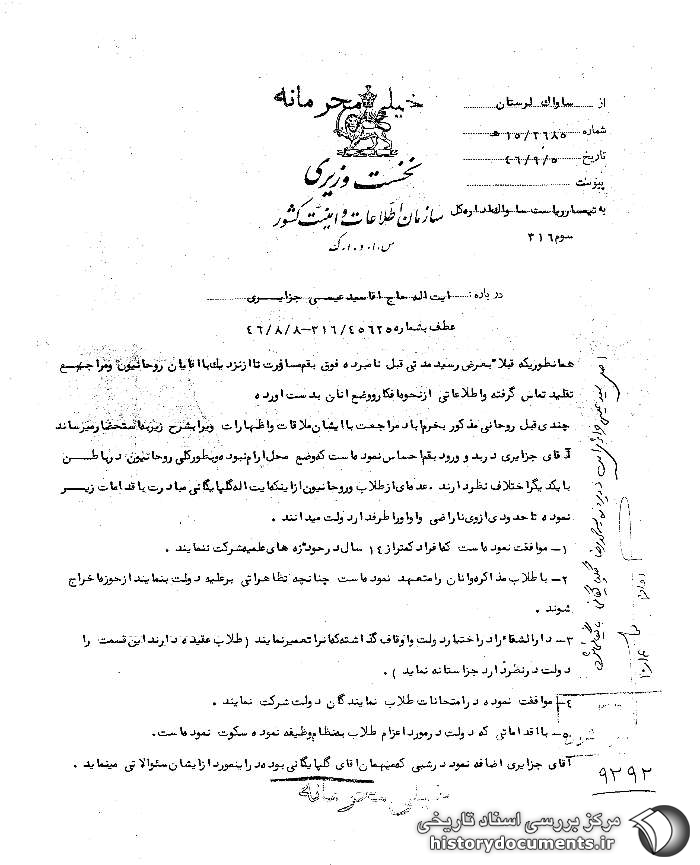 خیلی محرمانه
از ساواک لرستان
شماره ۱۵/۲۶۸۵ هـ
تاریخ ۴۶/۹/۵
پیوست
نخست وزیری
سازمان اطلاعات و امنیت کشور
س.ا.و.ا.ک
به تیمسار ریاست ساواک اداره کل
سوم ۳۱۶
درباره: ایت اله حاج اقا سید عیسی جزایری
عطف بشماره ۳۱۶/۴۵۶۲۵-۴۶/۸/۸
همانطوریکه قبلا" بعرض رسید مدتی قبل نامبرده فوق بقم مسافرت تا از نزدیک با اقایان روحانیون و مراجع
تقلید تماس گرفته و اطلاعاتی از نحوه افکار و وضع انان بدست اورده
چندی قبل روحانی مذکور بخرم اباد مراجعت با ایشان ملاقات و اظهارات ویرا بشرح زیر باستحضار میرساند
آقای جزایری در بدو ورود بقم احساس نموده است که وضع محل ارام نبوده و بطور کلی روحانیون در باطن
با یکدیگر اختلاف نظر دارند . عده ای از طلاب و روحانیون از اینکه ایت اله گلپایگانی مبادرت با قدامات زیر
نموده تا حدودی از وی ناراضی و او را طرفدار دولت میدانند .
۱- موافقت نموده است که افراد کمتر از ۱۴ سال در حوزه های علمیه شرکت ننمایند .
۲- با طلاب مذاکره و انان را متعهد نموده است چنانچه تظاهراتی بر علیه دولت بنمایند از حوزه اخراج
شوند .
۳- دارالشفاء را در اختیار دولت و اوقاف گذاشته که انرا تعمیر نمایند ( طلاب عقیده دارند این قسمت را
دولت در نظر دارد جزء استانه نماید ) .
۴- موافقت نموده در امتحانات طلاب نمایندگان دولت شرکت نمایند .
۵- با اقداماتی که دولت در مورد اعزام طلاب به نظام وظیفه نموده سکوت نموده است .
آقای جزایری اضافه نمود در شبی که میهمان اقای گلپایگانی بوده در اینمورد از ایشان سئوالاتی مینماید .
خیلی محرمانه
۹۲۹۲
مرکز بررسی اسناد تاریخی
historydocuments.ir